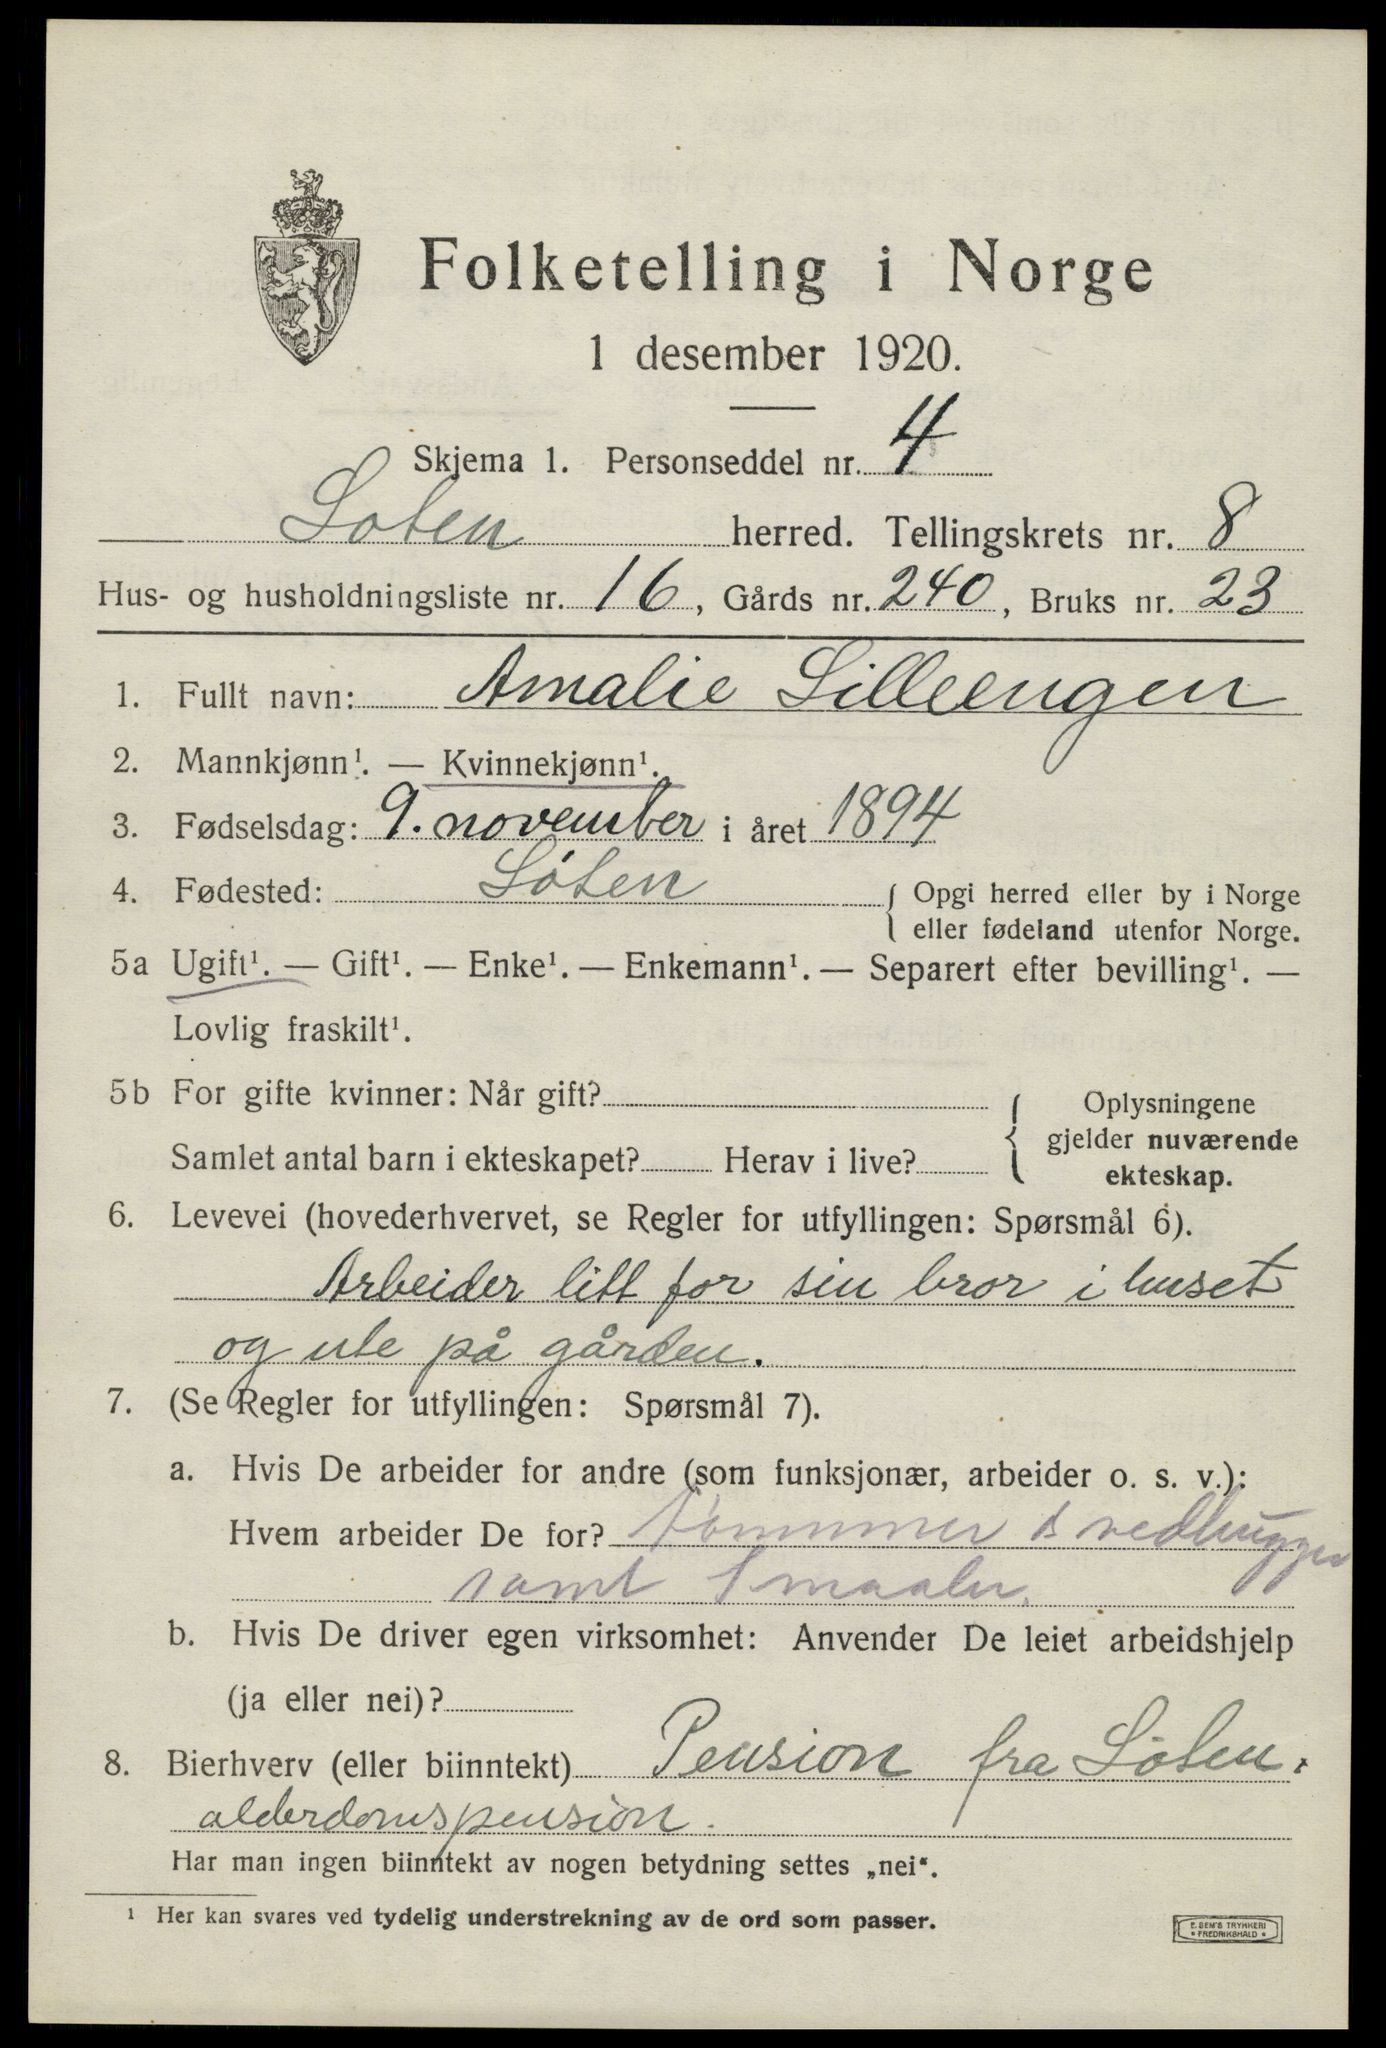 Folketelling i Norge
1 desember 1920.
Skjema 1. Personseddel nr. 4
Loten herred. Tellingskrets nr. 8
Hus- og husholdningsliste nr. 16, Gårds nr. 240, Bruks nr. 23
1. Fullt navn: Amalie Lilleengen
2. Mannkjønn¹. — Kvinnekjønn¹.
3. Fødselsdag: 9. november i året 1894
4. Fødested: Löten { Opgi herred eller by i Norge
eller fødeland utenfor Norge.
5a Ugift¹. — Gift¹. — Enke¹. — Enkemann¹. — Separert efter bevilling¹. —
Lovlig fraskilt¹.
5b For gifte kvinner: Når gift?
Samlet antal barn i ekteskapet? Herav i live?
{ Oplysningene
gjelder nuværende
ekteskap.
6. Levevei (hovederhvervet, se Regler for utfyllingen: Spørsmål 6).
Arbeider litt for sin bror i huset
og ute på gården.
7. (Se Regler for utfyllingen: Spørsmål 7).
a. Hvis De arbeider for andre (som funksjonær, arbeider o. s. v.):
Hvem arbeider De for? vedhugger
samt
b. Hvis De driver egen virksomhet: Anvender De leiet arbeidshjelp
(ja eller nei)?
8. Bierhverv (eller biinntekt) Pension fra Löten.
alderdomspension.
Har man ingen biinntekt av nogen betydning settes „nei“.
¹ Her kan svares ved tydelig understrekning av de ord som passer.
E. SEM'S TRYKKERI
* FREDRIKSHALD *